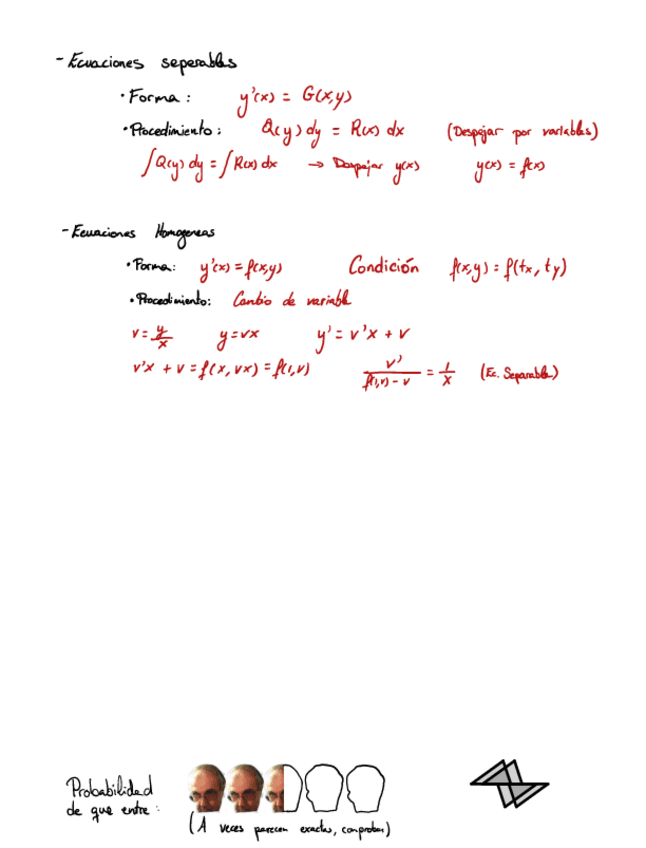 - Ecuaciones seperables
• Forma: y'(x) = G(x,y)
• Procedimiento: Q(y) dy = R(x) dx (Despejar por variables)
∫Q(y) dy = ∫R(x) dx → Despejar y(x) y(x) = f(x)
- Ecuaciones Homogeneas
• Forma: y'(x) = f(x,y) Condición f(x,y) = f(tx, ty)
• Procedimiento: Cambio de variable
v = y/x y = vx y' = v'x + v
v'x + v = f(x, vx) = f(1,v) v'/(f(1,v) - v) = 1/x (Ec. Separable)
Probabilidad
de que entre:
(A veces parecen exactas, comprobar)